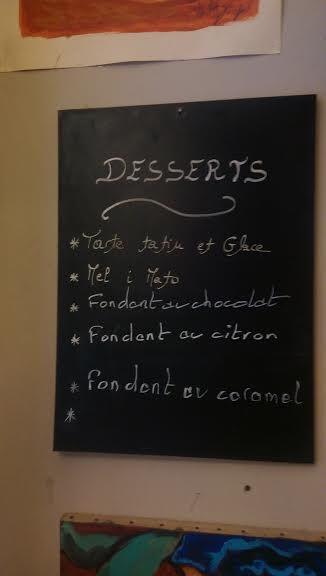 DESSERTS
* Tarte tatin et Glace
* Mel i Mato
* Fondant au chocolat
* Fondant au citron
* Fondant au caramel
*